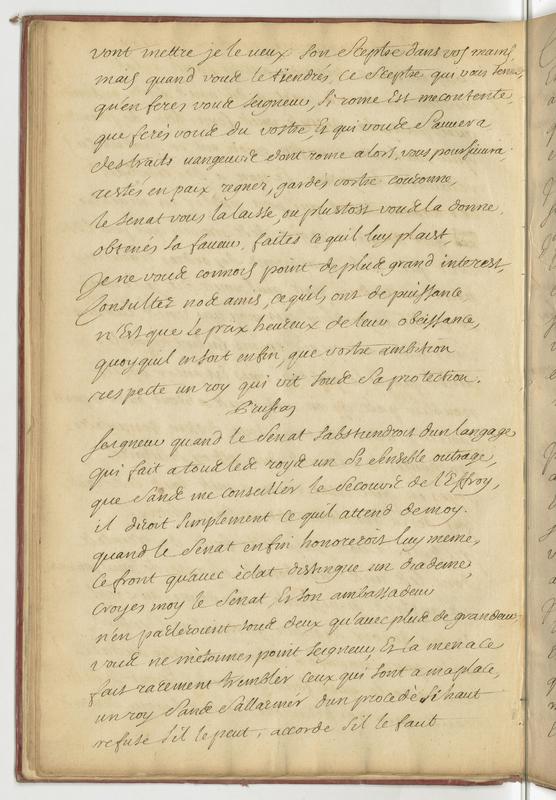 vont mettre je le veux son sceptre dans vos mains,
mais quand vous le tiendrés, ce sceptre qui vous tente,
qu'en ferés vous seigneur, si rome est mecontente,
que ferés vous du vostre, Et qui vous sauvera
des traits vangeurs dont rome alors vous poursuivra.
restés en paix regner, gardés vostre couronne,
le senat vous la laisse, ou plustost vous la donne,
obtenés sa faveur, faites ce quil luy plaist,
Je ne vous connois point de plus grand interest,
Consultez nos amis, ce quils ont de puissance,
n'Est que le prix heureux de leur obeissance,
quoyquil en soit enfin, que vostre ambition
respecte un roy qui vit sous sa protection.
Prusias
seigneur quand le senat s'abstiendroit d'un langage
qui fait a tous les roys un si sensible outrage,
que sans me conseillér le secours de l'Effroy,
il diroit simplement ce quil attend de moy.
quand le senat enfin honoreroit luy meme,
Ce front qu'avec éclat distingue un diademe,
croyes moy le senat, Et son ambassadeur
n'en parleroient tous deux qu'avec plus de grandeur,
vous ne m'étonnes point seigneur, Et la menace
fait rarement trembler ceux qui sont a ma place,
un roy sans s'allarmér d'un procedé si haut
refuse s'il le peut, accorde s'il le faut